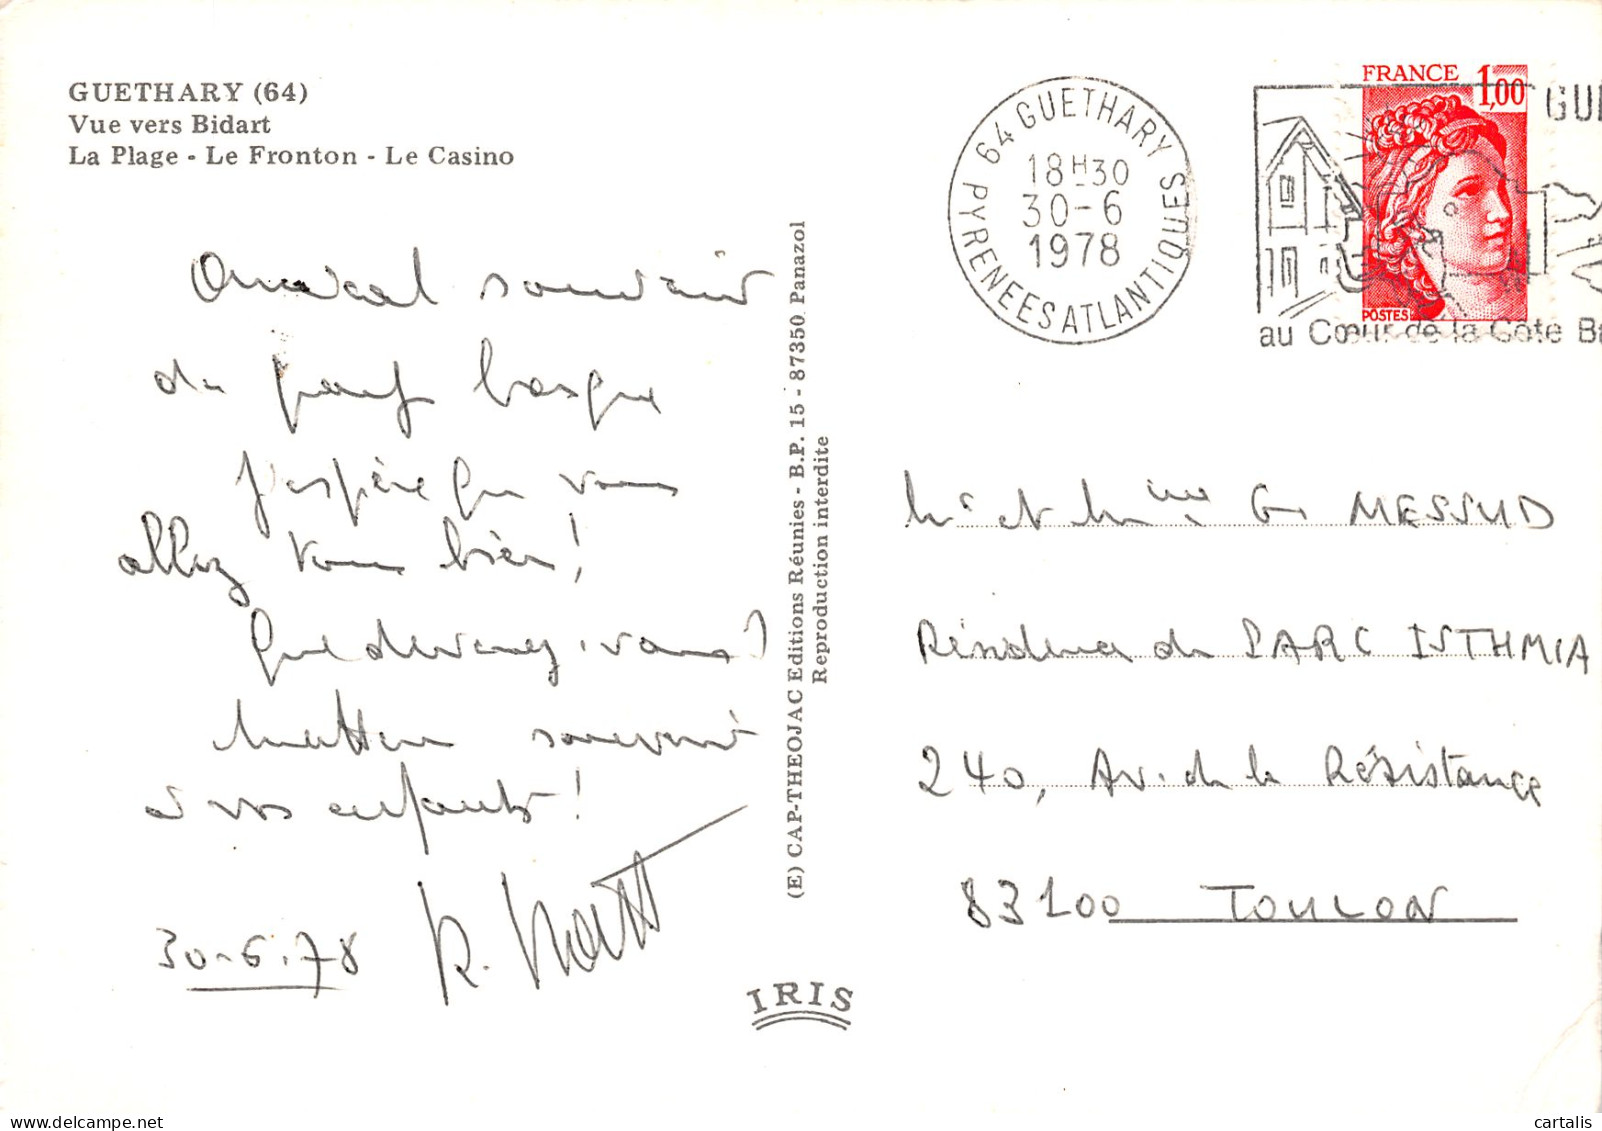 GUETHARY (64)
Vue vers Bidart
La Plage - Le Fronton - Le Casino
64 GUETHARY
18H30
30-6
1978
PYRENEES ATLANTIQUES
FRANCE 1,00
POSTES
GUE
au Cœur de la Côte Ba
souvenir
du pays basque
J'espère que vous
allez tous bien!
Que devenez-vous?
Meilleur souvenir
à vos enfants!
30-6-78
R.
(E) CAP-THEOJAC Editions Réunies - B.P. 15 - 87350 Panazol
Reproduction interdite
IRIS
Mr et Mme G. MESSUD
Résidence du PARC ISTHMIA
240, Av. de la Résistance
83100 TOULON
cartalis delcampe.net